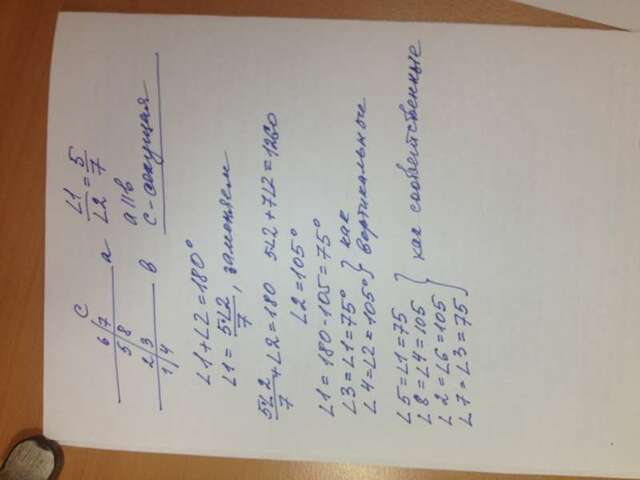 c
6/7 a
5/8
2/3 в
1/4
∠1/∠2 = 5/7
a || в
c - секущая
∠1+∠2=180°
∠1= 5∠2/7, заменяем
5∠2/7 +∠2=180 5∠2+7∠2=1260
∠2=105°
∠1=180-105=75°
∠3=∠1=75° } как
∠4=∠2=105° } вертикальные
∠5=∠1=75
∠8=∠4=105
∠2=∠6=105
∠7=∠3=75 } как соответственные